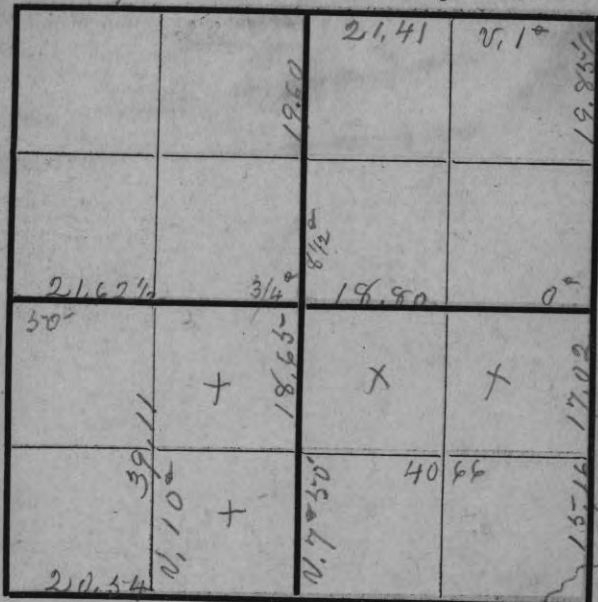 21,41 V, 1°
19,60
19,85½
8½°
21,62½ 3/4° 18,80 0°
50
18,65
17,02
+ X X
39,11
40 66
V, 10°
+
V. 7° 50'
15-16
20,54